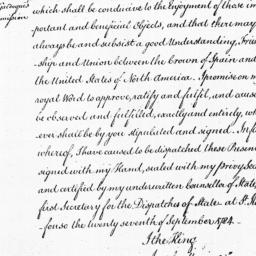 which shall be conducive to the Enjoyment of these im-
portant and beneficial Objects, and that there may
always be and subsist a good Understanding, Frien
ship and Union between the Crown of Spain and
the United States of North America. I promise on m
royal Word to approve, ratify and fulfil, and cause
be observed and fulfilled, exactly and entirely, wh
ever shall be by you stipulated and signed. In fa
whereof, I have caused to be dispatched these Presen
signed with my Hand, sealed with my Privy Sea
and certified by my underwritten Counsellor of State,
first Secretary for the Dispatches of State at St. Il
fonso the twenty seventh of September 1784.
I the King